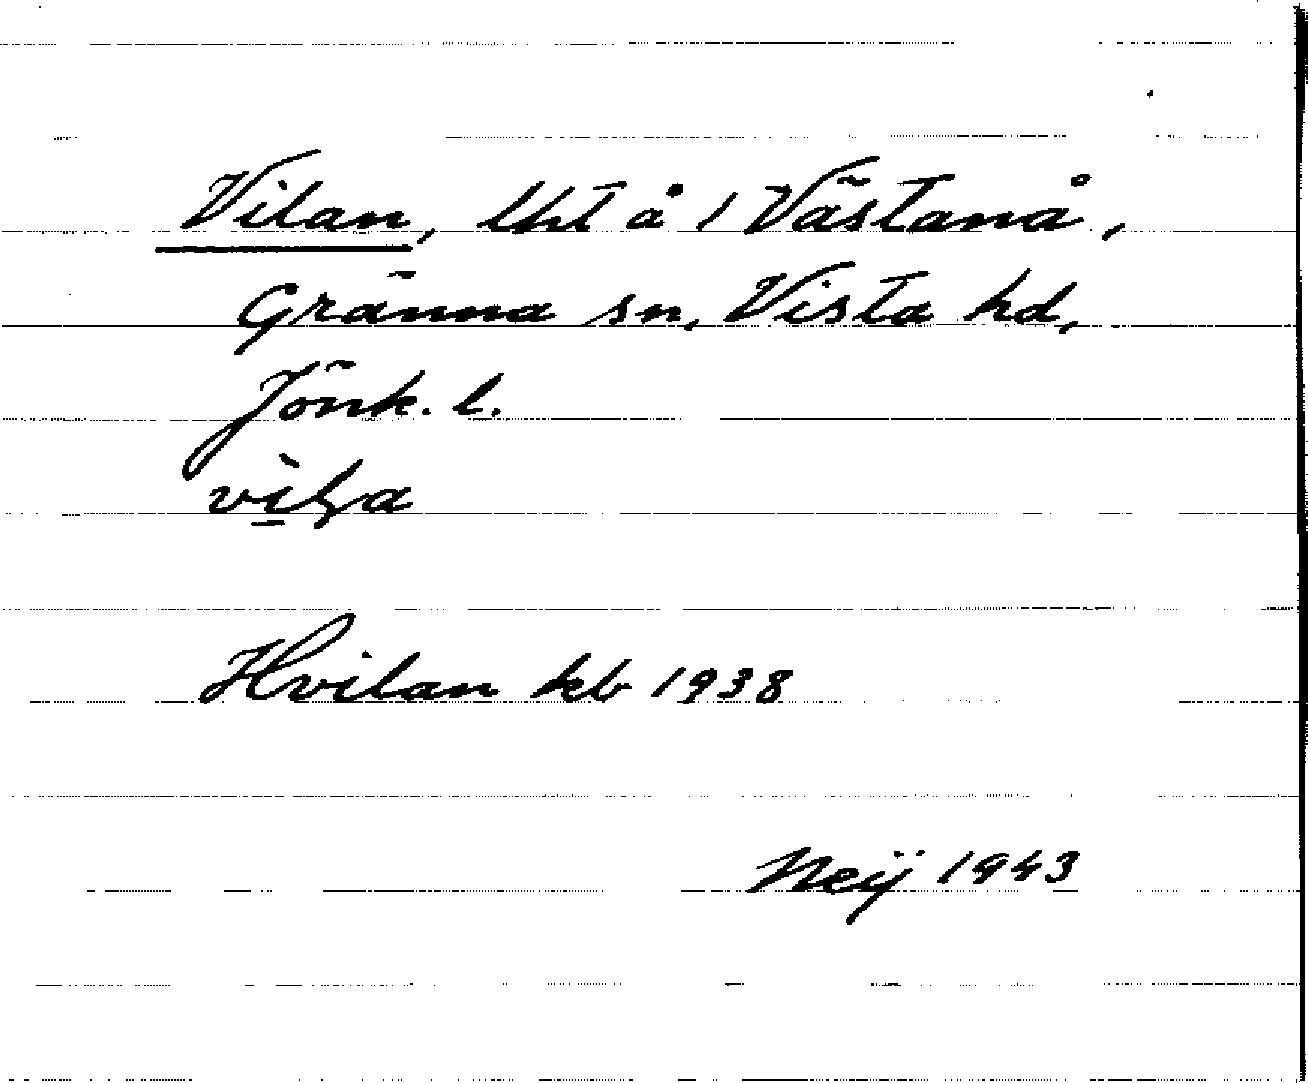 Vilan, lht å 1 Västanå,
Gränna sn, Vista hd,
Jönk. l.
Hvilan kb 1938
Neij 1943